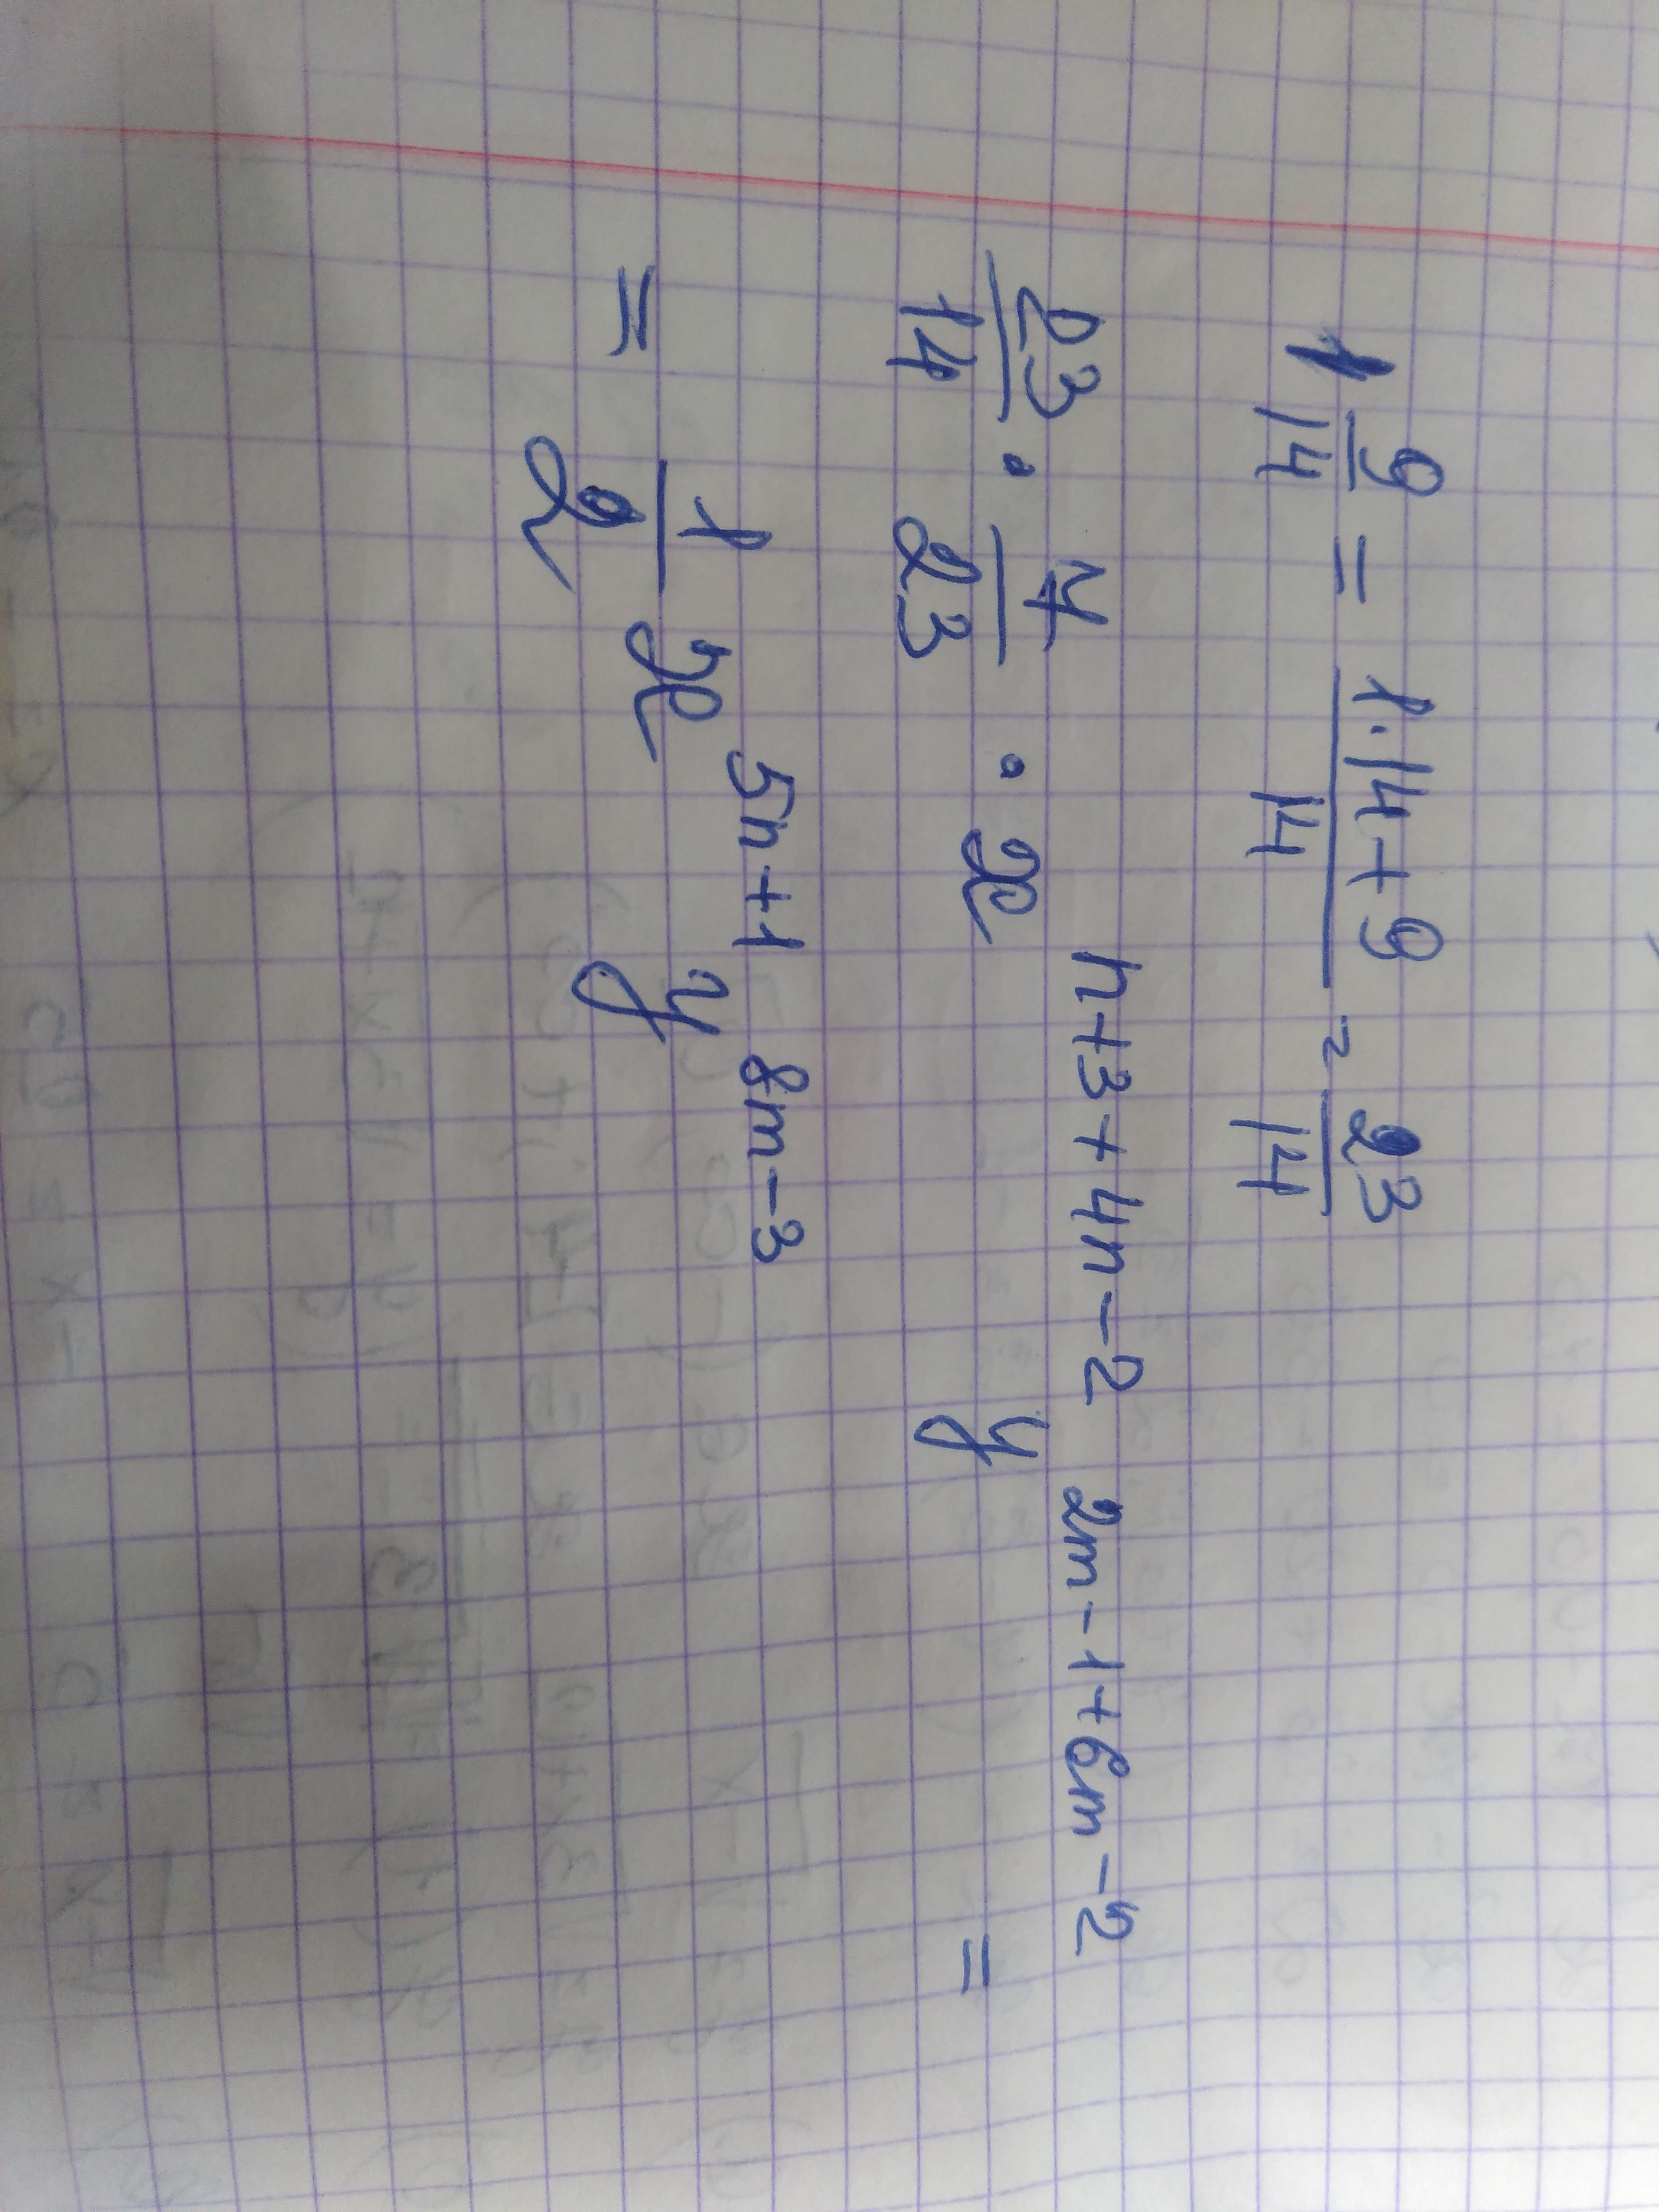 1 9/14 = (1·14+9)/14 = 23/14
23/14 · 7/23 · x^(n+3+4n-2) y^(2m-1+6m-2) =
= 1/2 x^(5n+1) y^(8m-3)